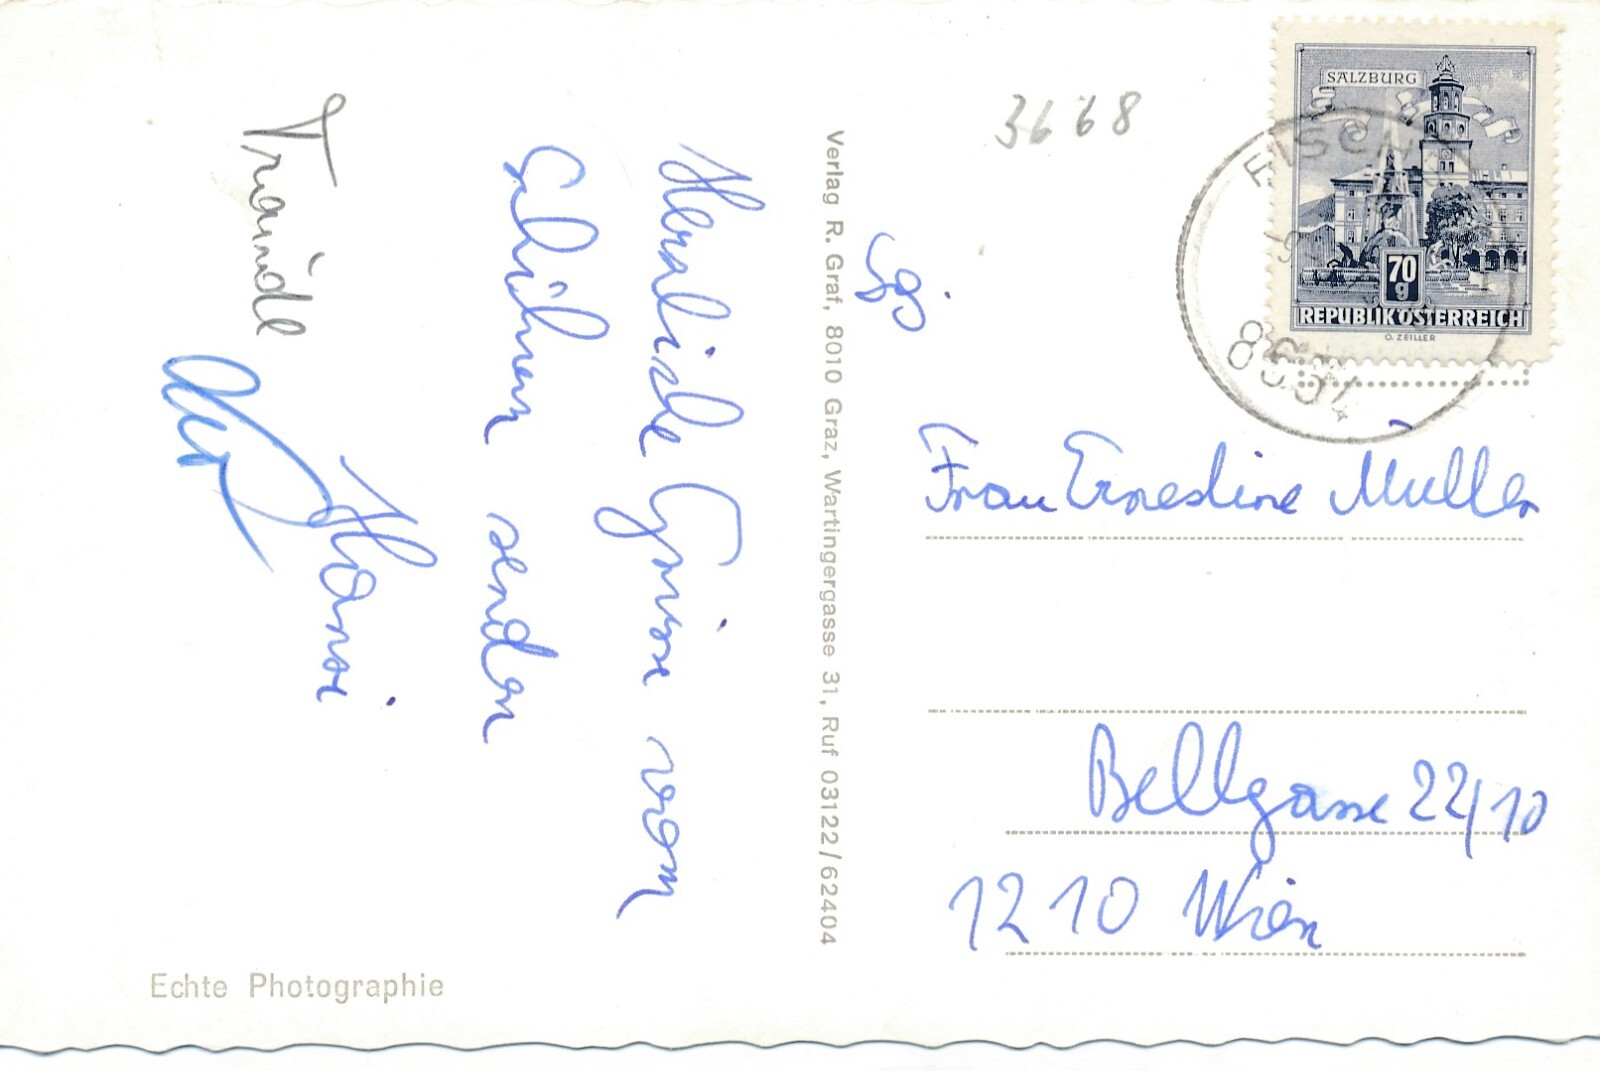 Herzliche Grüsse vom
senden
Hansi
Traudl
Echte Photographie
Verlag R. Graf, 8010 Graz, Wartingergasse 31, Ruf 03122/62404
3668
SALZBURG
70
g
REPUBLIK ÖSTERREICH
O. ZEILLER
Frau Ernestine Müller
Bellgasse 22/10
1210 Wien